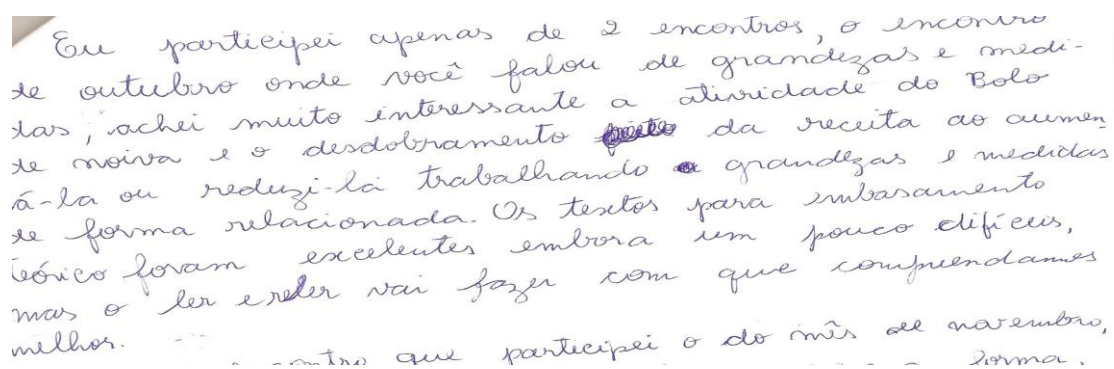 Eu participei apenas de 2 encontros, o encontro
de outubro onde você falou de grandezas e medi-
das, achei muito interessante a atividade do Bolo
de noiva e o desdobramento da receita ao aumen
á-la ou reduzi-la trabalhando grandezas e medidas
de forma relacionada. Os textos para embasamento
teórico foram excelentes embora um pouco difíceis,
mas o ler e reler vai fazer com que compreendamos
melhor.
que participei o do mês de novembro,
forma,